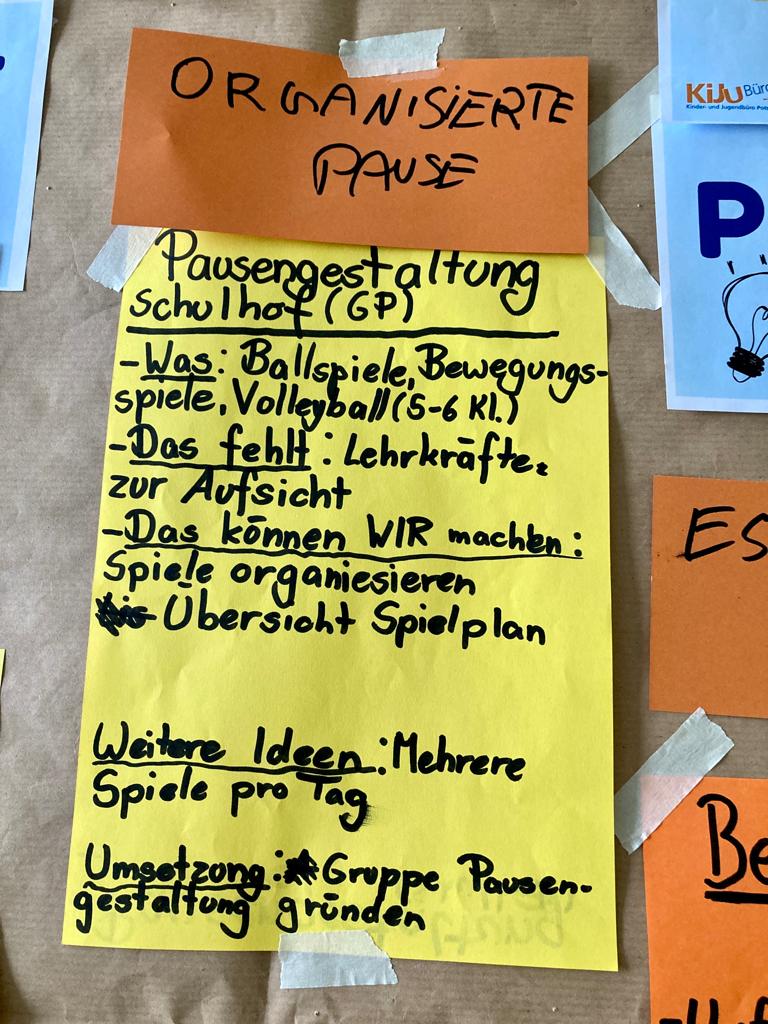 ORGANISIERTE
PAUSE
Pausengestaltung
Schulhof (GP)
-Was: Ballspiele, Bewegungs-
spiele, Volleyball (5-6 Kl.)
-Das fehlt: Lehrkräfte
zur Aufsicht
-Das können WIR machen:
Spiele organiesieren
Übersicht Spielplan
Weitere Ideen: Mehrere
Spiele pro Tag
Umsetzung: Gruppe Pausen-
gestaltung gründen
KiJu Büro
Kinder- und Jugendbüro Pots
P
ES
Be